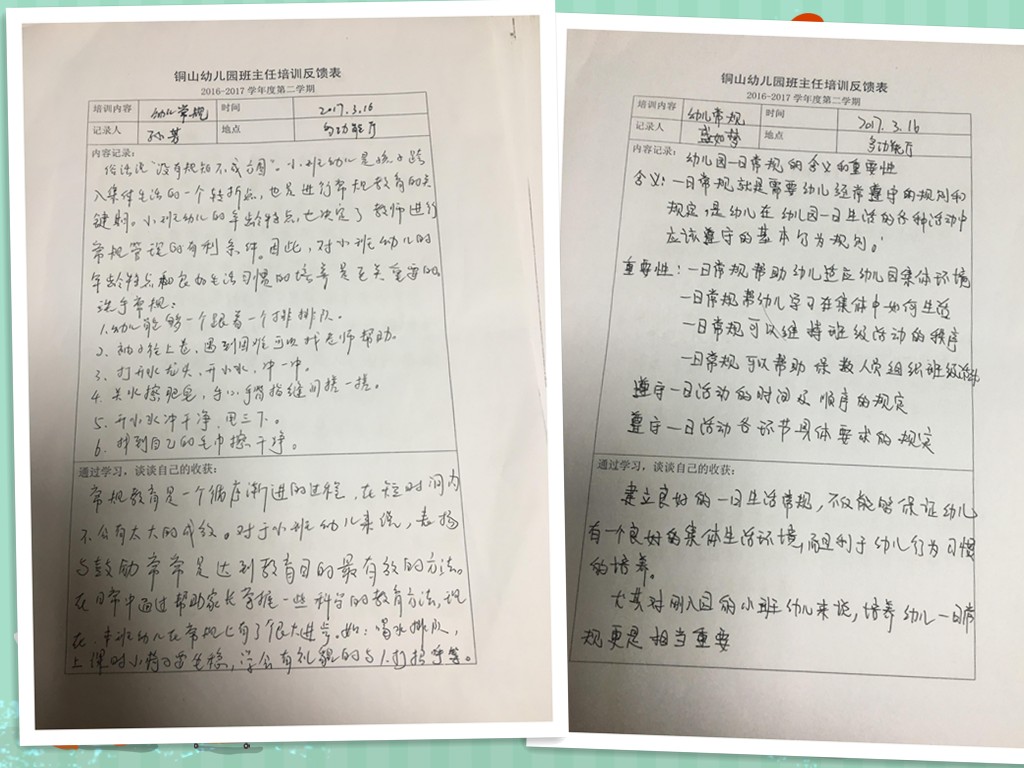 铜山幼儿园班主任培训反馈表
2016-2017 学年度第二学期
培训内容 幼儿常规 时间 2017.3.16
记录人 孙芳 地点 多功能厅
内容记录:
俗话说"没有规矩不成方圆"。小班幼儿是孩子踏
入集体生活的一个转折点,也是进行常规教育的关
键期。小班幼儿的年龄特点,也决定了教师进行
常规管理的有利条件。因此,对小班幼儿的
年龄特点和良好生活习惯的培养是至关重要的。
洗手常规:
1.幼儿能够一个跟着一个排排队。
2、袖子往上卷,遇到困难可以找老师帮助。
3、打开水龙头,开小水,冲一冲。
4、关水擦肥皂,手心手背指缝间搓一搓。
5、开小水冲干净,甩三下。
6、找到自己的毛巾擦干净。
通过学习,谈谈自己的收获:
常规教育是一个循序渐进的过程,在短时间内
不会有太大的成效。对于小班幼儿来说,表扬
与鼓励常常是达到教育目的最有效的方法。
在日常中通过帮助家长掌握一些科学的教育方法,现
在,本班幼儿在常规上有了很大进步。如:喝水排队,
上课时小椅子坐稳,学会有礼貌的与人打招呼等。
铜山幼儿园班主任培训反馈表
2016-2017 学年度第二学期
培训内容 幼儿常规 时间 2017.3.16
记录人 盛如梦 地点 多功能厅
内容记录: 幼儿园一日常规的含义和重要性
含义:一日常规就是需要幼儿经常遵守的规则和
规定,是幼儿在幼儿园一日生活的各种活动中
应该遵守的基本行为规则。
重要性:一日常规帮助幼儿适应幼儿园集体环境
一日常规帮幼儿学习在集体中如何生活
一日常规可以维持班级活动的秩序
一日常规可以帮助保教人员组织班级活动
遵守一日活动的时间及顺序的规定
遵守一日活动各环节具体要求的规定
通过学习,谈谈自己的收获:
建立良好的一日生活常规,不仅能够保证幼儿
有一个良好的集体生活环境,而且利于幼儿行为习惯
的培养。
尤其对刚入园的小班幼儿来说,培养幼儿一日常
规更是相当重要